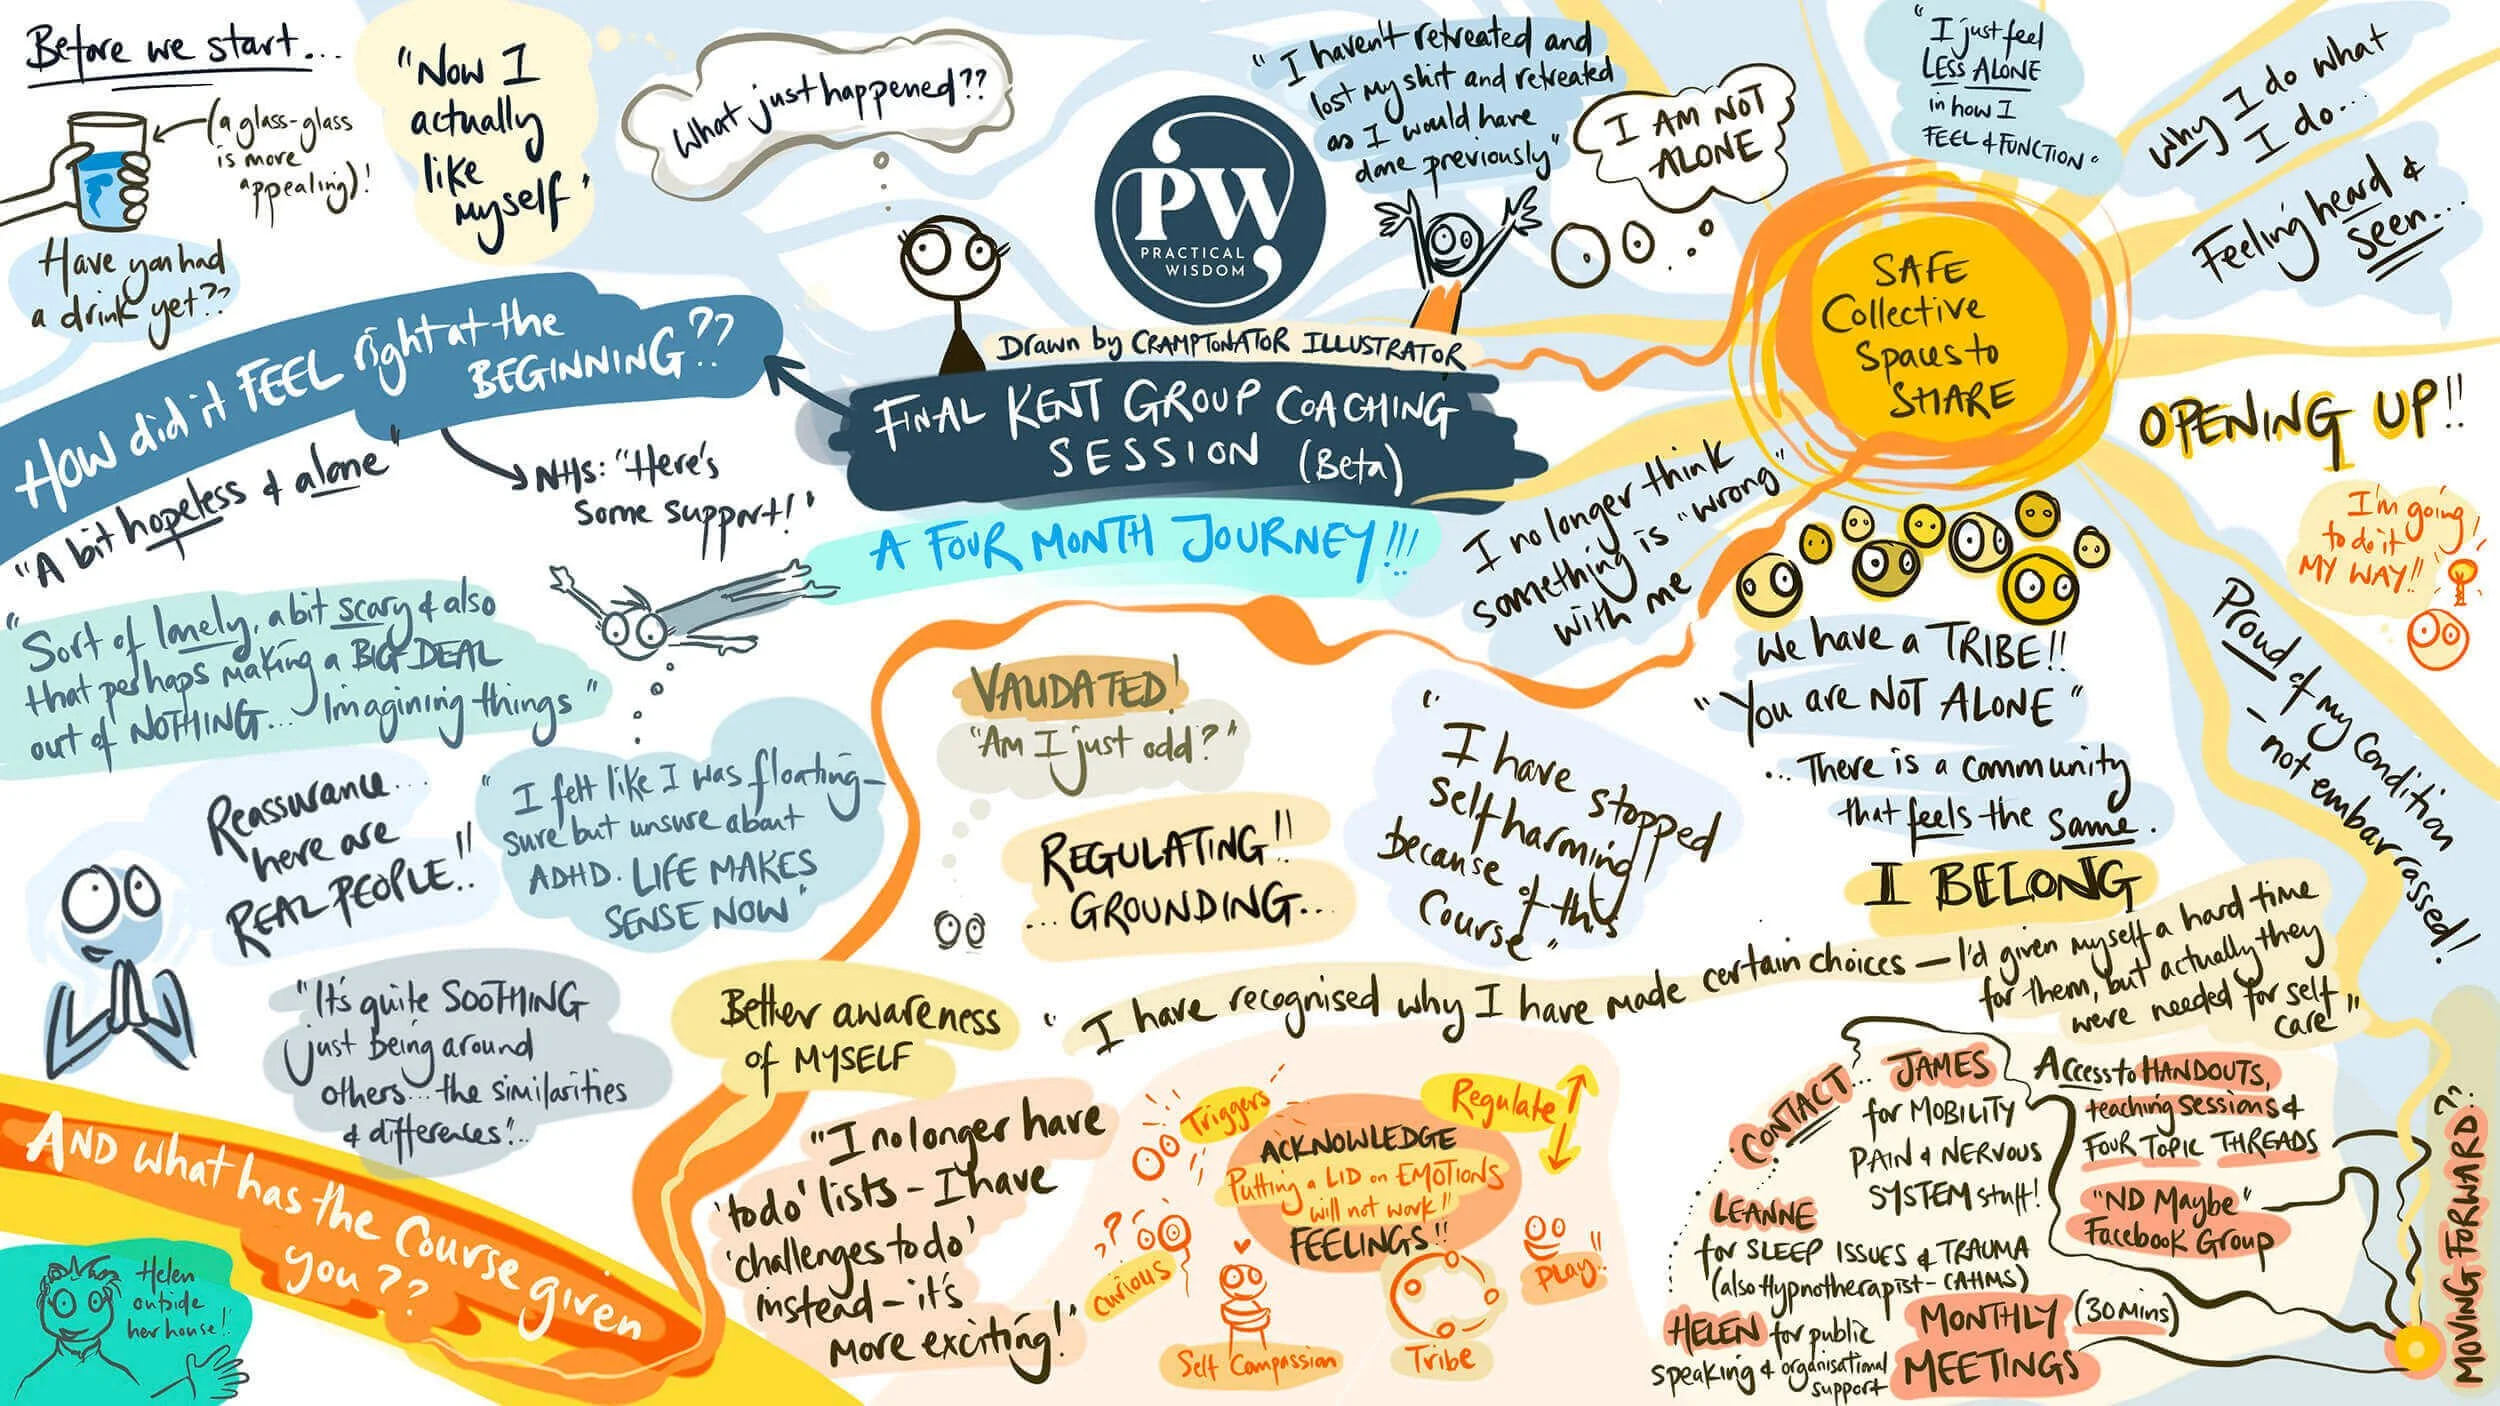 Before we start...
(a glass-glass
is more
appealing)!
Have you had
a drink yet??
"Now I
actually
like
myself"
What just happened??
PW
PRACTICAL
WISDOM
Drawn by CRAMPTONATOR ILLUSTRATOR
FINAL KENT GROUP COACHING
SESSION (Beta)
A FOUR MONTH JOURNEY!!!
"I haven't retreated and
lost my shit and retreated
as I would have
done previously"
I AM NOT
ALONE
"I just feel
LESS ALONE
in how I
FEEL & FUNCTION"
Why I do what
I do...
Feeling heard &
seen...
SAFE
Collective
Spaces to
SHARE
OPENING UP!!
I'm going
to do it
MY WAY!!
Proud of my Condition
- not embarrassed!
I no longer think
something is "wrong"
with me
We have a TRIBE!!
"You are NOT ALONE"
... There is a community
that feels the same.
I BELONG
How did it FEEL right at the
BEGINNING??
"A bit hopeless & alone"
NHS: "Here's
some support!"
"Sort of lonely, a bit scary & also
that perhaps making a BIG DEAL
out of NOTHING... Imagining things"
Reassurance...
here are
REAL PEOPLE!!
"I felt like I was floating-
sure but unsure about
ADHD. LIFE MAKES
SENSE NOW"
"It's quite SOOTHING
just being around
others... the similarities
& differences"...
VALIDATED!
"Am I just odd?"
REGULATING!!
... GROUNDING...
"I have stopped
self harming
because of this
Course"
AND what has the Course given
you??
Helen
outside
her house!!
Better awareness
of MYSELF
"I have recognised why I have made certain choices - I'd given myself a hard time
for them, but actually they
were needed for self
care"
"I no longer have
'to do' lists - I have
'challenges to do'
instead - it's
more exciting!"
Triggers
Regulate
ACKNOWLEDGE
Putting a LID on EMOTIONS
will not work!!
FEELINGS!!
??
Curious
Self Compassion
Tribe
PLAY!!
CONTACT...
JAMES
for MOBILITY
PAIN & NERVOUS
SYSTEM stuff!
LEANNE
for SLEEP ISSUES & TRAUMA
(also Hypnotherapist - CAHMS)
HELEN for public
speaking & organisational
support
Access to HANDOUTS,
teaching sessions &
FOUR TOPIC THREADS
"ND Maybe"
Facebook Group
MONTHLY (30 mins)
MEETINGS
MOVING FORWARD??